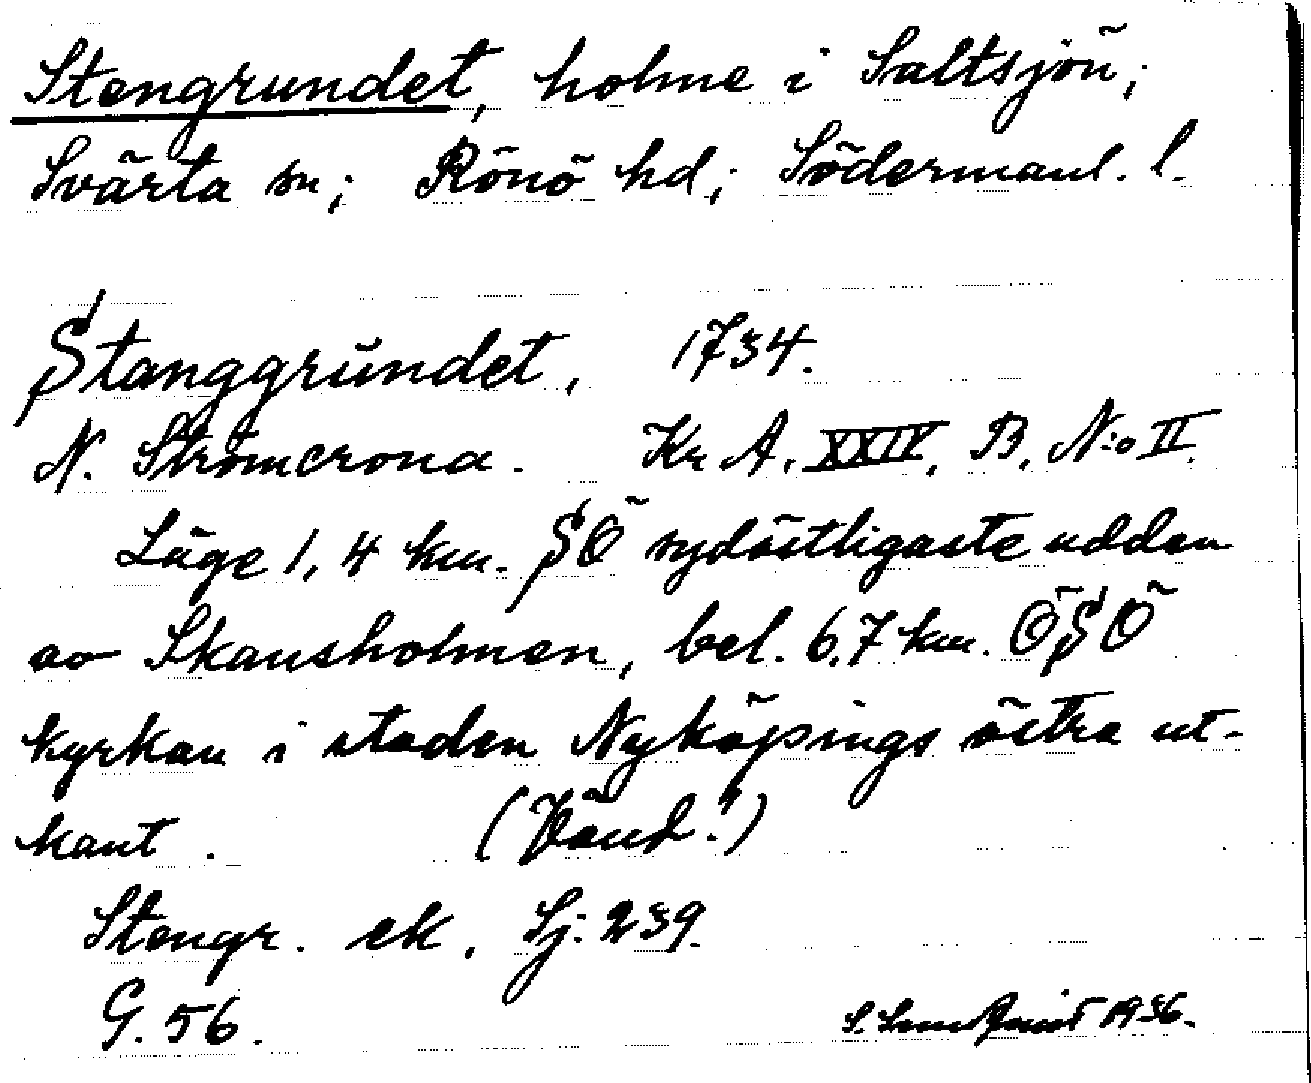 Stengrundet, holme i Saltsjön;
Svärta sn; Rönö hd; Södermanl. l.
Stanggrŭndet, 1734.
N. Strömcrona. Kr A. XXIV, B, N:o II.
Läge 1,4 km. SÖ sydöstligaste udden
av Skansholmen, bel. 6,7 km. ÖSÖ
kyrkan i staden Nyköpings östra ut-
kant. (Vänd!)
Stengr. ek. Sj: 239.
G. 56.
S. Sundqvist 1936.